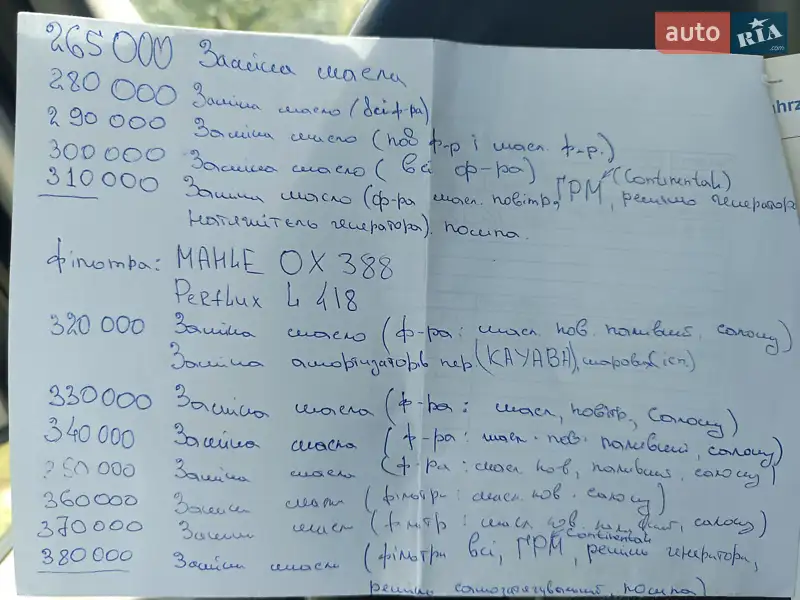 auto RIA .com
ahrz
265000 Заміна масла
280 000 Заміна масло (всі ф-ра)
290 000 Заміна масло (пов ф-р і масл. ф-р.)
300000 Заміна масло (всі ф-ра)
310000 Заміна масло (ф-ра масл. повітр., ГРМ (Continentali), ремінь генератора
натяжитель генератора). помпа.
фільтра: MAHLE OX 388
Perflux L 418
320 000 Заміна масло (ф-ра: масл. пов. паливний, салону)
Заміна амортизаторів пер. (KAYABA),
330000 Заміна масла (ф-ра: масл, повітр., салону)
340 000 Заміна масла (ф-ра: масл. пов. паливний, салону)
350 000 Заміна масла (ф-ра: масл. пов, паливний, салону)
360000 Заміна масла (фільтри: масл. пов. салону)
370000 Заміна масл (фільтр: масл. пов. паливний, салону)
380000 Заміна масло (фільтри всі, ГРМ Continentali, ремінь генератора,
ремінь самозатягувальний, помпа)